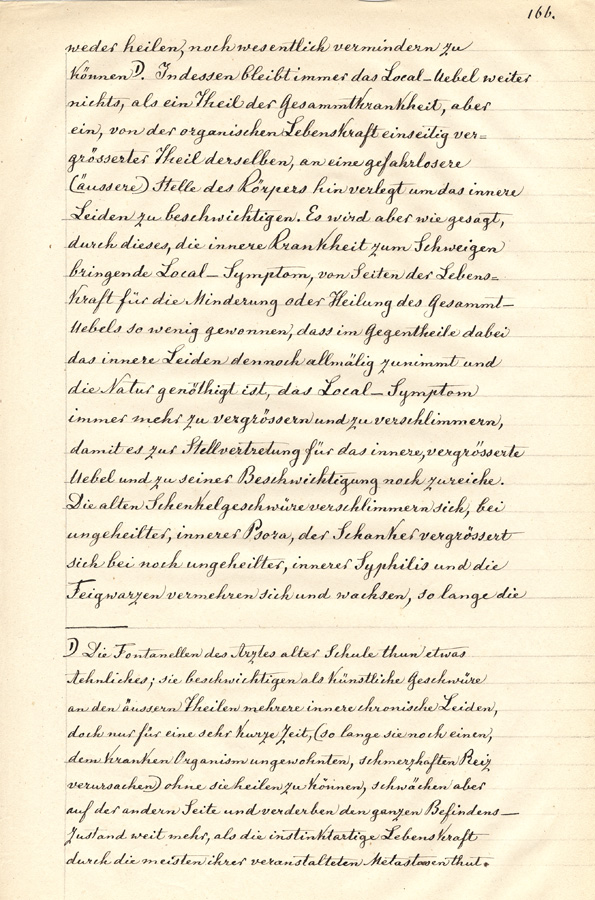 166.
weder heilen, noch wesentlich vermindern zu
können 1). Indessen bleibt immer das Local-Uebel weiter
nichts, als ein Theil der Gesammtkrankheit, aber
ein, von der organischen Lebenskraft einseitig ver=
grösserter Theil derselben, an eine gefahrlosere
(äussere) Stelle des Körpers hin verlegt um das innere
Leiden zu beschwichtigen. Es wird aber wie gesagt,
durch dieses, die innere Krankheit zum Schweigen
bringende Local-Symptom, von Seiten der Lebens=
kraft für die Minderung oder Heilung des Gesammt-
Uebels so wenig gewonnen, dass im Gegentheile dabei
das innere Leiden dennoch allmälig zunimmt und
die Natur genöthigt ist, das Local-Symptom
immer mehr zu vergrössern und zu verschlimmern,
damit es zur Stellvertretung für das innere, vergrösserte
Uebel und zu seiner Beschwichtigung noch zureiche.
Die alten Schenkelgeschwüre verschlimmern sich, bei
ungeheilter, innerer Psora, der Schanker vergrössert
sich bei noch ungeheilter, innerer Syphilis und die
Feigwarzen vermehren sich und wachsen, so lange die
1) Die Fontanellen des Arztes alter Schule thun etwas
Aehnliches; sie beschwichtigen als künstliche Geschwüre
an den äussern Theilen mehrere innere chronische Leiden,
doch nur für eine sehr kurze Zeit, (so lange sie noch einen,
dem kranken Organism ungewohnten, schmerzhaften Reiz
verursachen) ohne sie heilen zu können, schwächen aber
auf der andern Seite und verderben den ganzen Befindens-
Zustand weit mehr, als die instinktartige Lebenskraft
durch die meisten ihrer veranstalteten Metastasen thut.